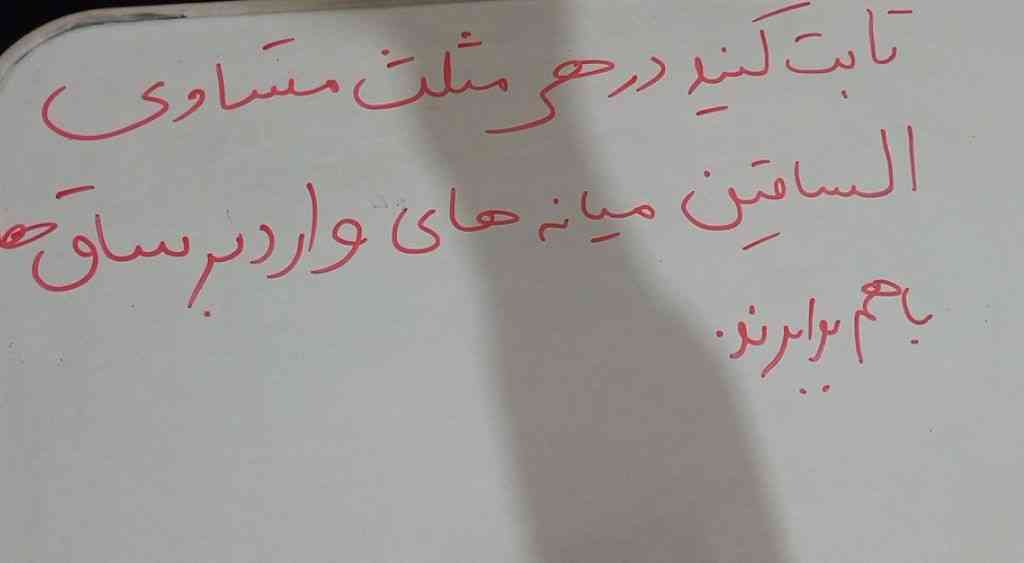 ثابت کنید در هر مثلث متساوی
الساقین میانه های وارد بر ساق ها
با هم برابرند.